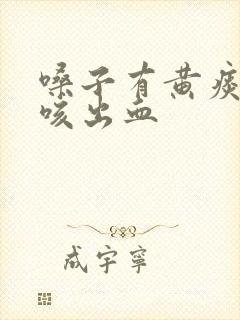 嗓子有黄痰
咳出血
成宇寧